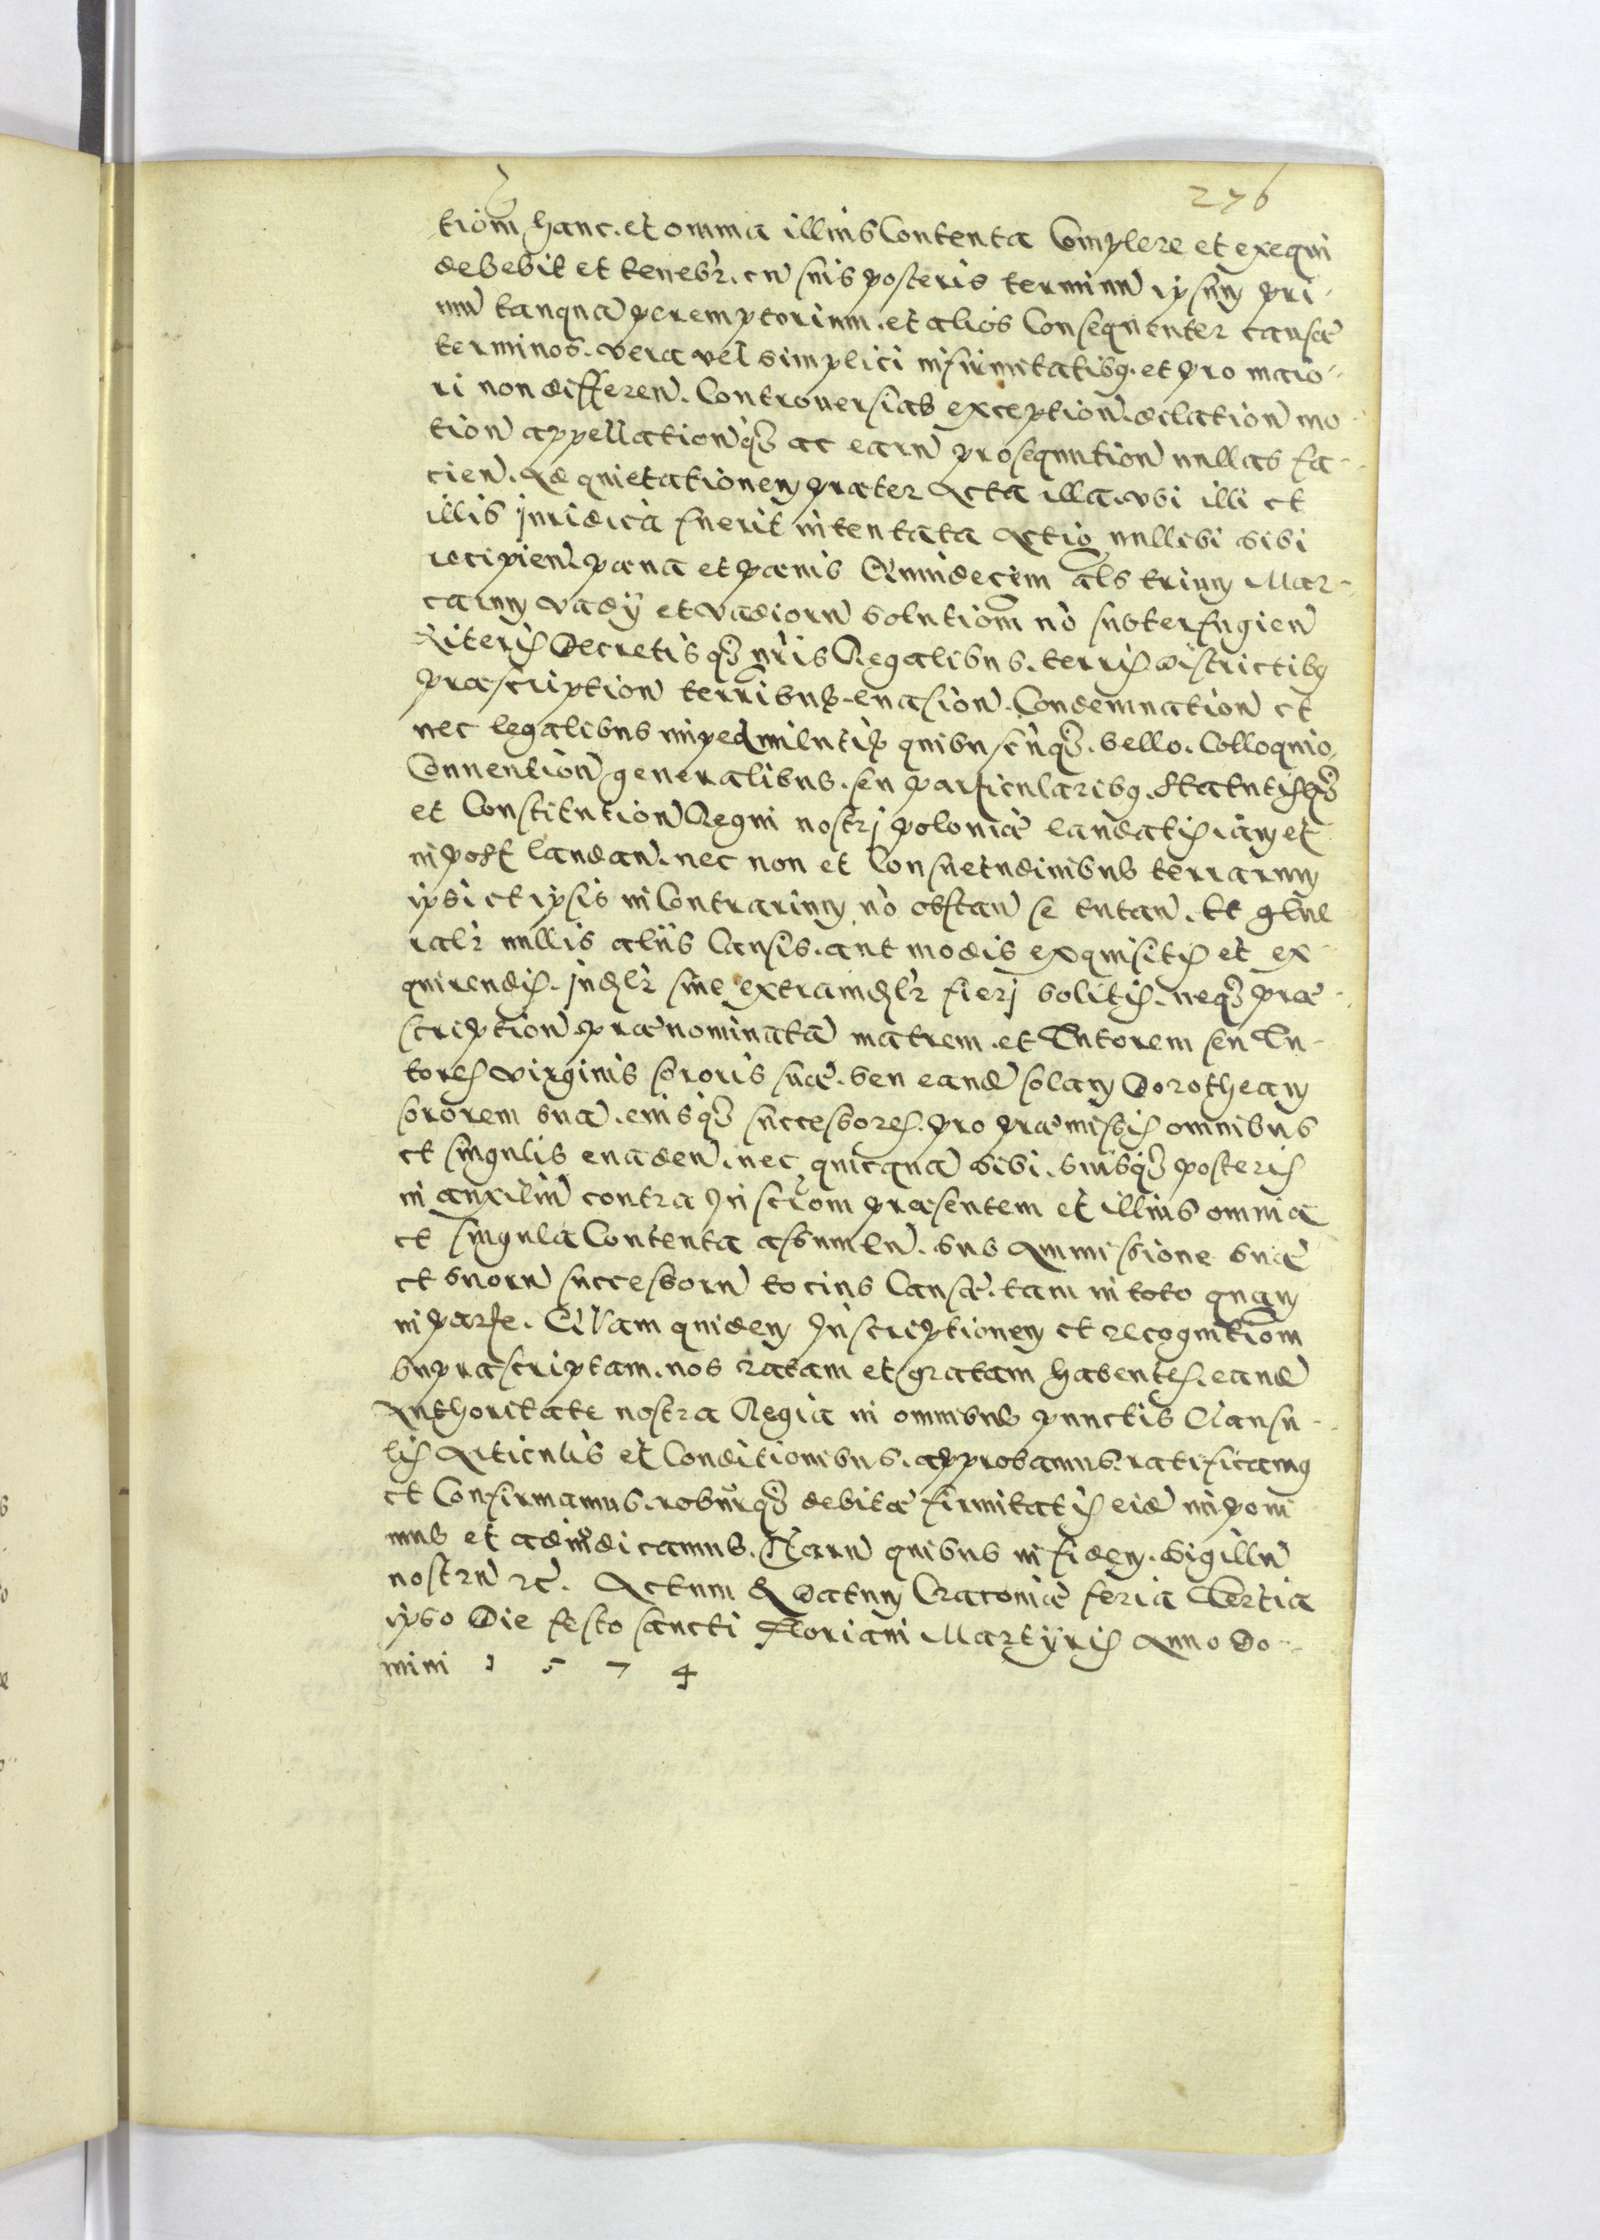 276
tiom̃ hanc. et omnia illius Contenta Complere et exequi
debebit et tenebr̃. cũ suis posteris terminũ ipsum pri-
mũ tanquã peremptorium. et alios Consequenter causæ
terminos. vera vel simplici infirmitatibꝫ. et pro maio-
ri non differeñ. Controuersias exceptioñ. dilatioñ mo-
tioñ appellatioñqꝫ ac earũ prosequutioñ nullas fa-
cieñ. Ad quietationem præter Acta illa. vbi illi et
illis juridica fuerit intentata Actio nullibi sibi
recipieñ. pœna et pœnis Quindecim als trium Mar-
carum vadÿ et vadiorũ solutiom̃ nõ subterfugieñ
Literis Decretisqꝫ nr̃is Regalibus. terris districtibꝫ
præscriptioñ terr̃ibus. euasioñ. Condemnatioñ et
nec legalibus impedimentis quibuscũqꝫ. bello. Colloquio.
Conuentioñ generalibus. seu particularibꝫ. Statutisqꝫ
et Constitutioñ Regni nostrj poloniæ laudatis iam et
inpost laudañ. nec non et Consuetudinibus terrarum
ipsi et ipsis in Contrarium nõ obstañ se tutañ. Et gñul
ialr̃ nullis alijs Causis. aut modis exquisitis et ex-
quirendis. judlr̃ siue extraiudlr̃ fierj solitis. neqꝫ præ-
scriptioñ prænominatã matrem. et Tutorem seu Tu-
tores virginis sororis suæ. seu eandẽ solam Dorotheam
sororem suã. eiusqꝫ successores. pro præmissis omnibus
et singulis euadeñ. nec quicquã sibi. suisqꝫ posteris
in auxiliũ contra Inscr̃om præsentem et illius omnia
et singula Contenta assumeñ. sub Ammissione suæ
et suorũ successorũ tocius Causæ. tam in toto quam
in parte. Quam quidem Inscriptionem et recognitiom̃
suprascriptam. nos ratam et gratam habentes. eandẽ
Authoritate nostra Regia in omnibus punctis Clausu-
lis Articulis et Conditionibus. approbamus. ratificamꝫ
et Confirmamus. roburqꝫ debitæ firmitatis eidẽ imponi
mus et adiudicamus. Harũ quibus in fidem. Sigillũ
nostrũ rc̃. Actum & Datum Cracouiæ feria Tertia
ipso Die festo sancti Floriani Martÿris Anno Do-
mini 1 5 7 4